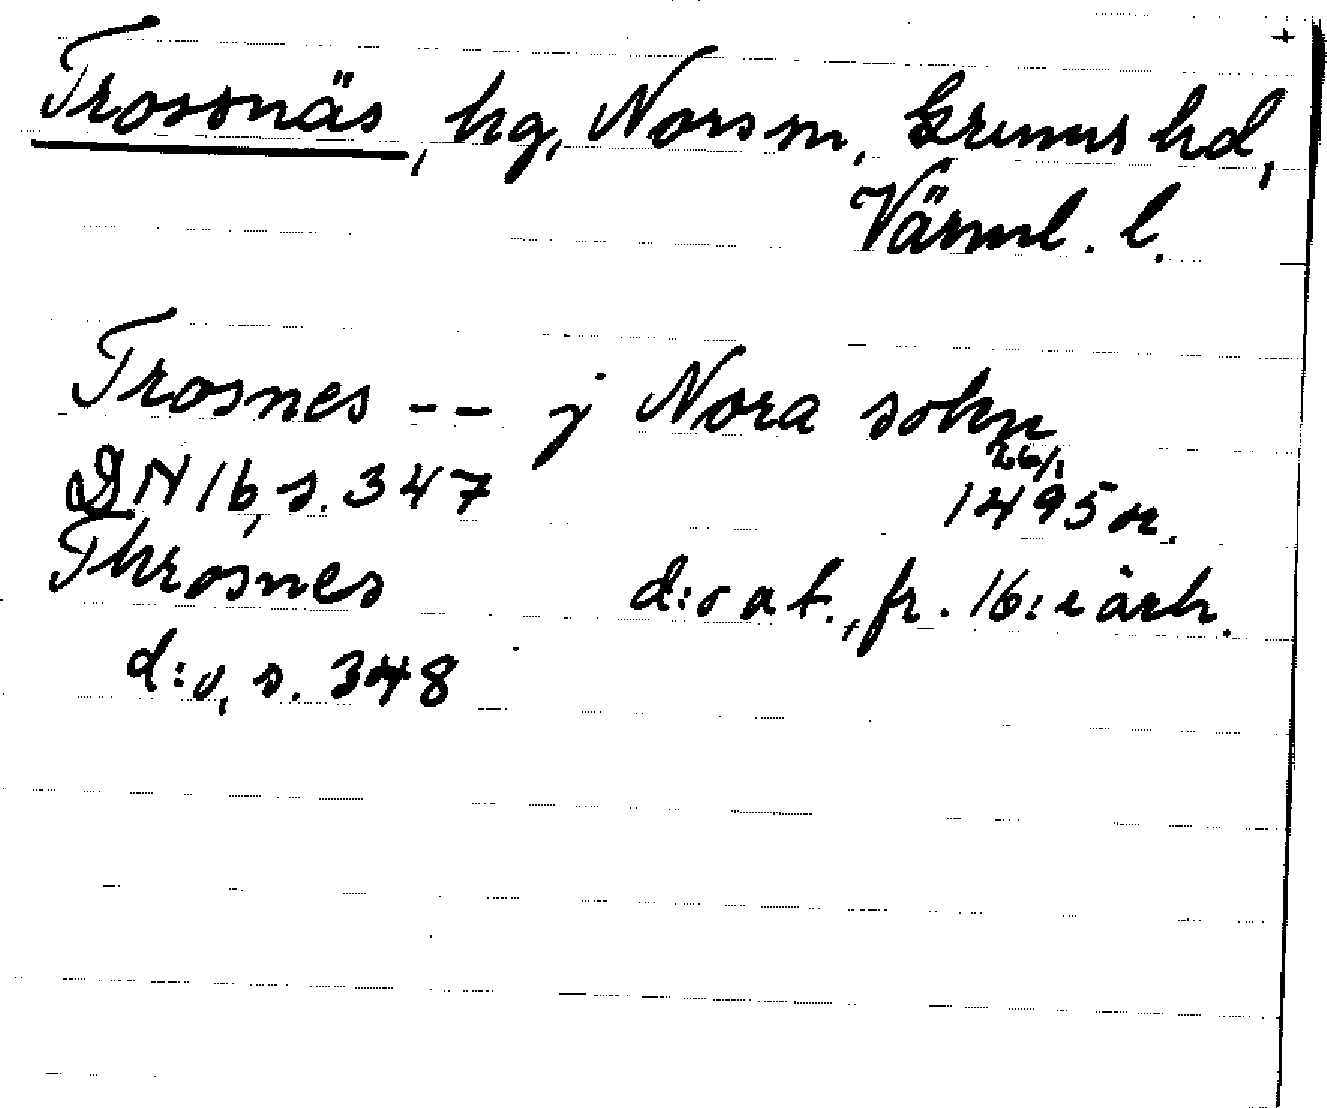 Trossnäs, hg, Nors sn, Grums hd,
Värml. l.
Trosnes -- j Nora sokn
DN 16, s. 347 26/1 1495 or.
Throsnes d:o a t., fr. 16:e årh.
d:o, s. 348